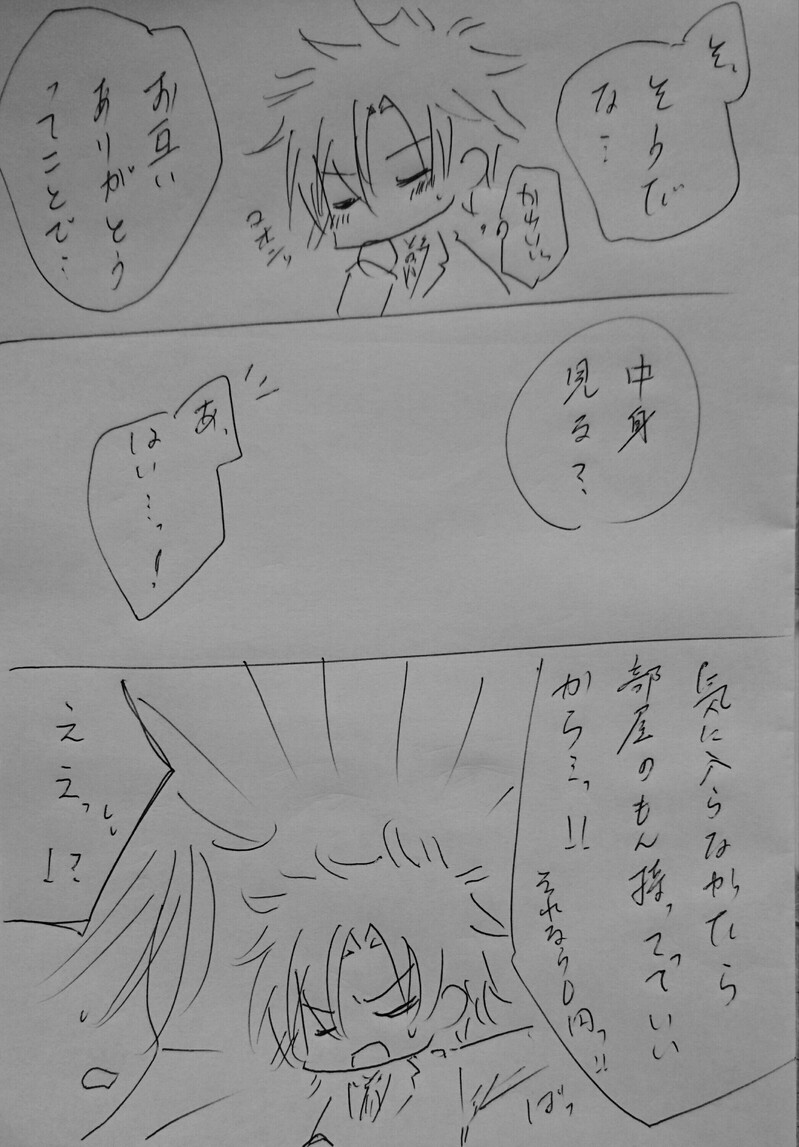 そ、
そうだ
な…
かわいい
お互い
ありがとう
ってことで…
コホンッ
中身
見る?
あ、
はい…っ!
気に入らなかたら
部屋のもん持ってっていい
からミっ!!
それなら0円っ!!
ええっ
!?
ばっ